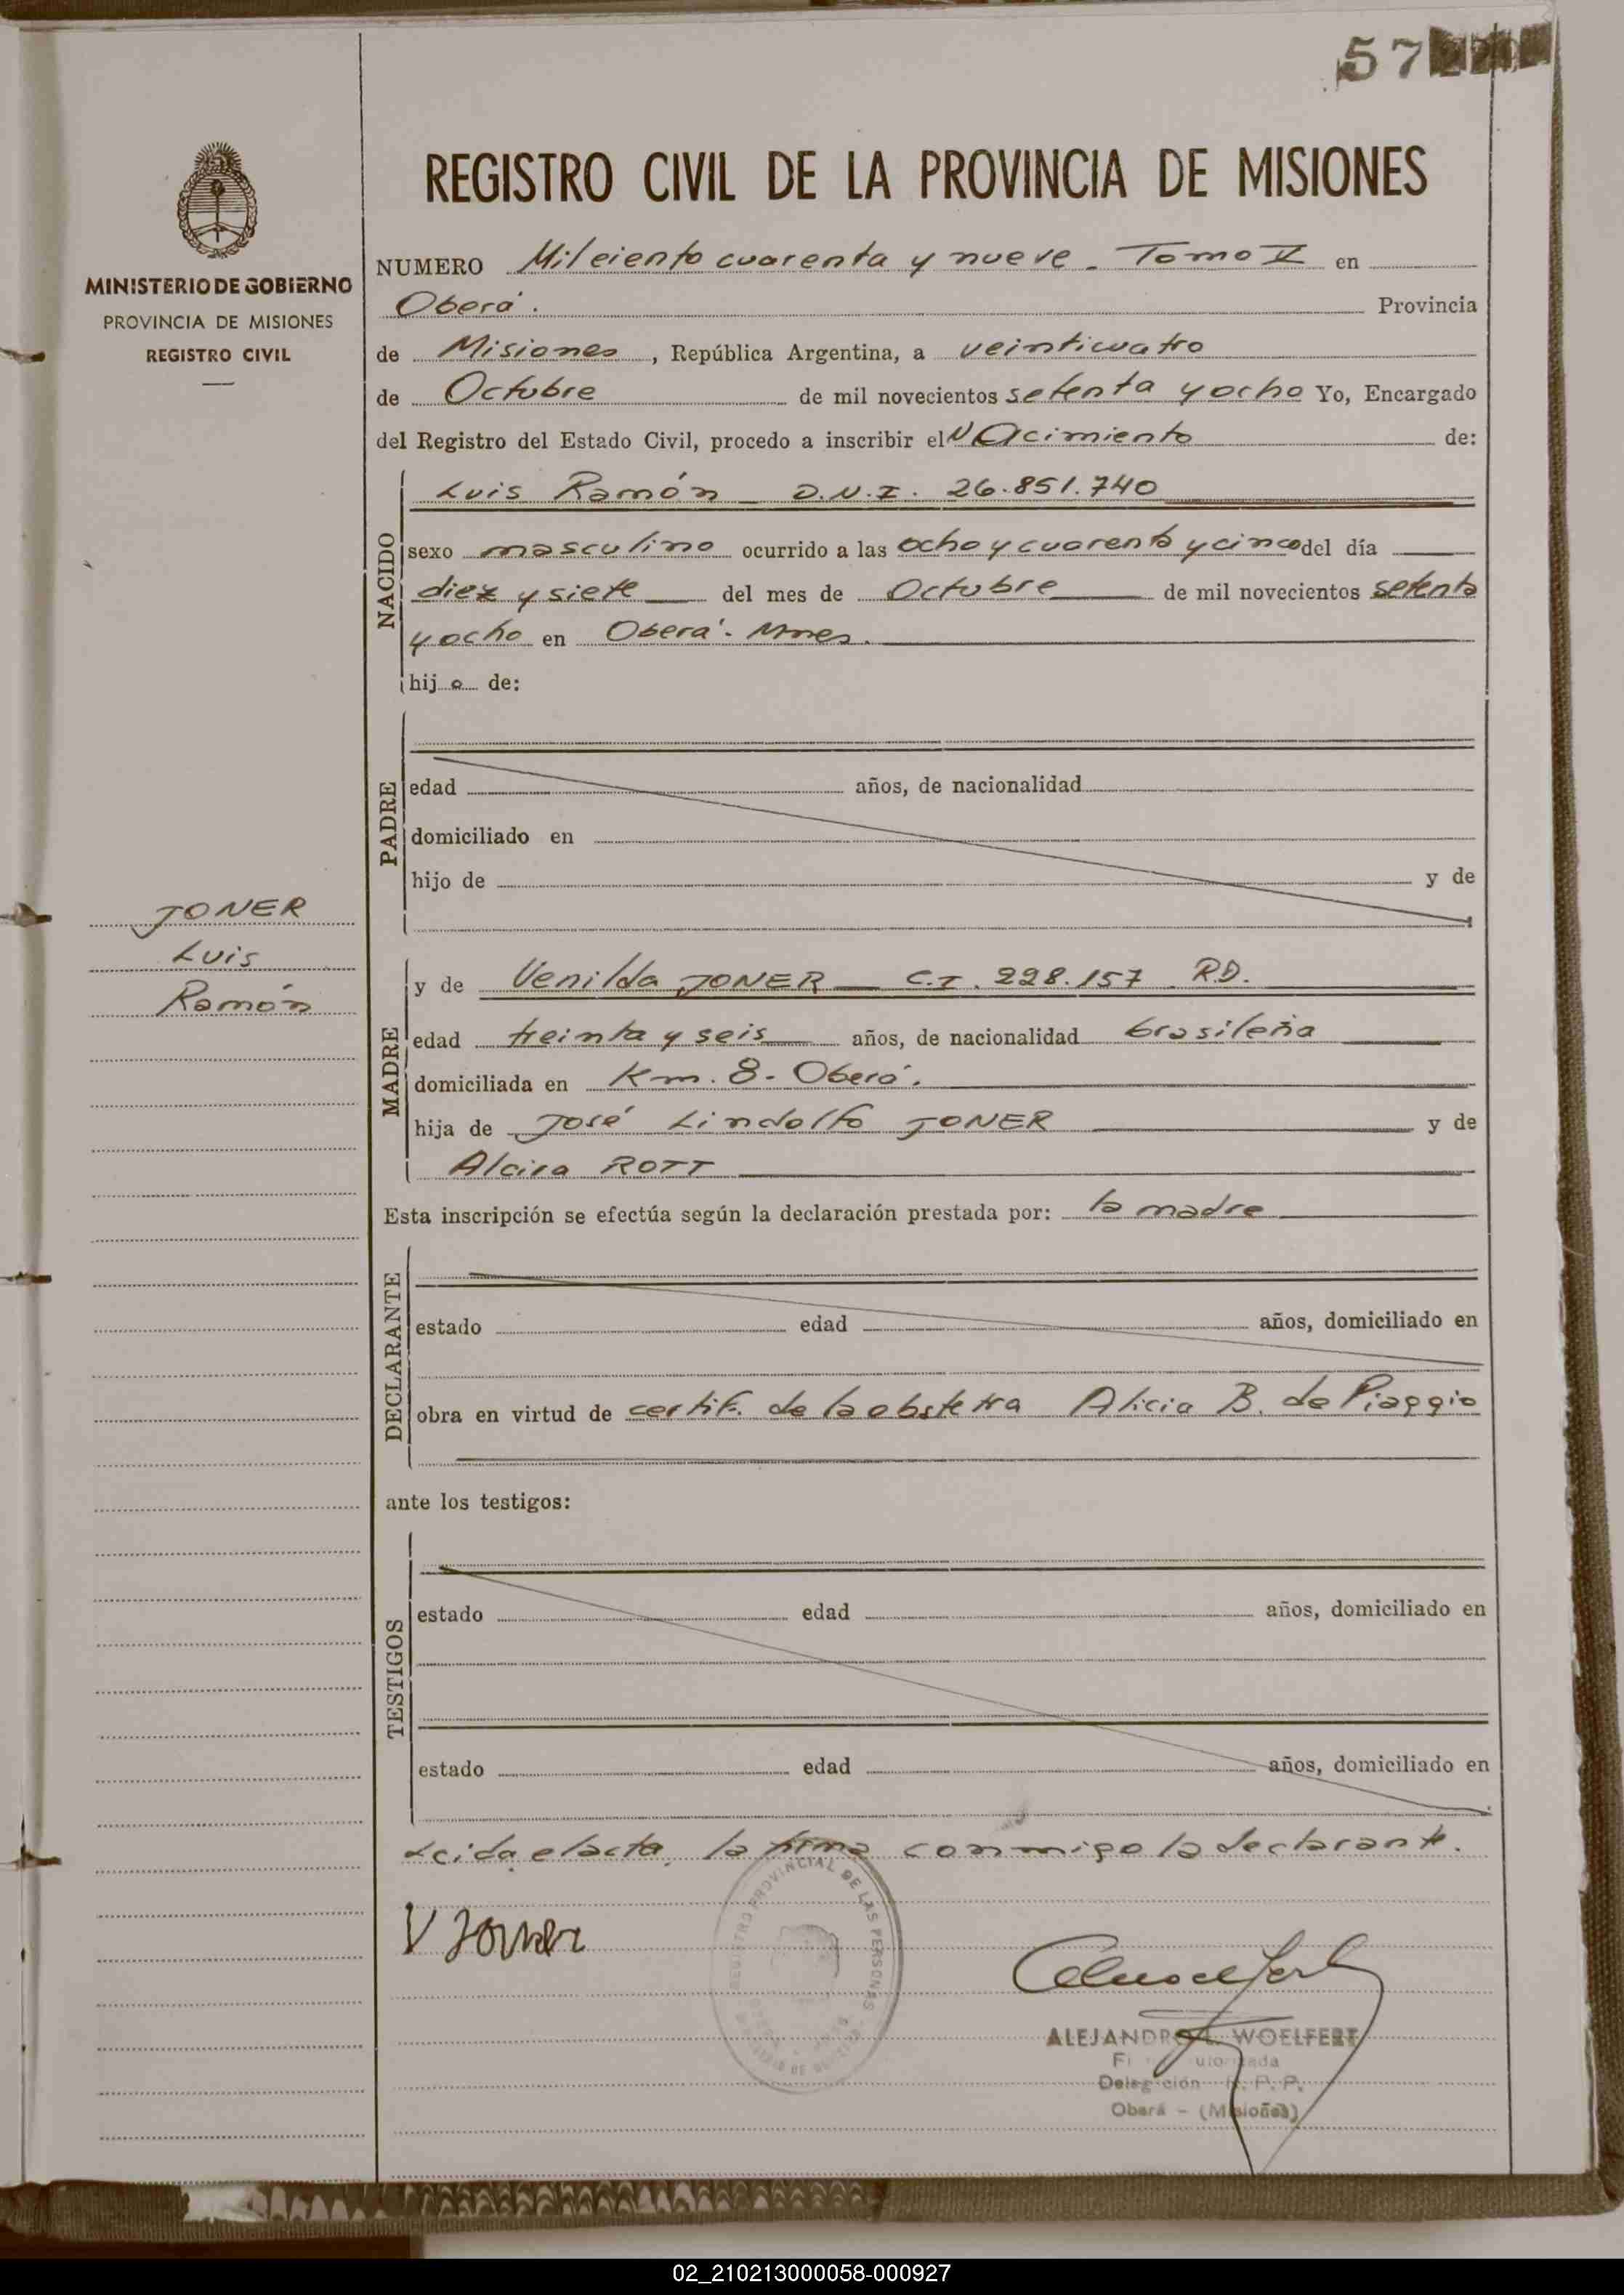 57
REGISTRO CIVIL DE LA PROVINCIA DE MISIONES
MINISTERIO DE GOBIERNO
PROVINCIA DE MISIONES
REGISTRO CIVIL
NUMERO Mil ciento cuarenta y nueve. Tomo V en
Oberá. Provincia
de Misiones, República Argentina, a veinticuatro
de Octubre de mil novecientos setenta y ocho Yo, Encargado
del Registro del Estado Civil, procedo a inscribir el Nacimiento de:
NACIDO
Luis Ramón D.N.I. 26.851.740
sexo masculino ocurrido a las ocho y cuarenta y cinco del día
diez y siete del mes de Octubre de mil novecientos setenta
y ocho en Oberá. Mnes.
hijo de:
PADRE
edad años, de nacionalidad
domiciliado en
hijo de y de
JONER
Luis
Ramón
MADRE
y de Venilda JONER C.I. 228.157 R.D.
edad treinta y seis años, de nacionalidad brasileña
domiciliada en Km. 8. Oberá.
hija de José Lindolfo JONER y de
Alcira ROTT
Esta inscripción se efectúa según la declaración prestada por: la madre
DECLARANTE
estado edad años, domiciliado en
obra en virtud de certif. de la obstetra Alicia B. de Piaggio
ante los testigos:
TESTIGOS
estado edad años, domiciliado en
estado edad años, domiciliado en
Leida el acta, la firma conmigo la declarante.
V Joner
REGISTRO PROVINCIAL DE LAS PERSONAS
ALEJANDRO WOELFERT
Delegación R. P. P.
Oberá - (Misiones)
02_210213000058-000927